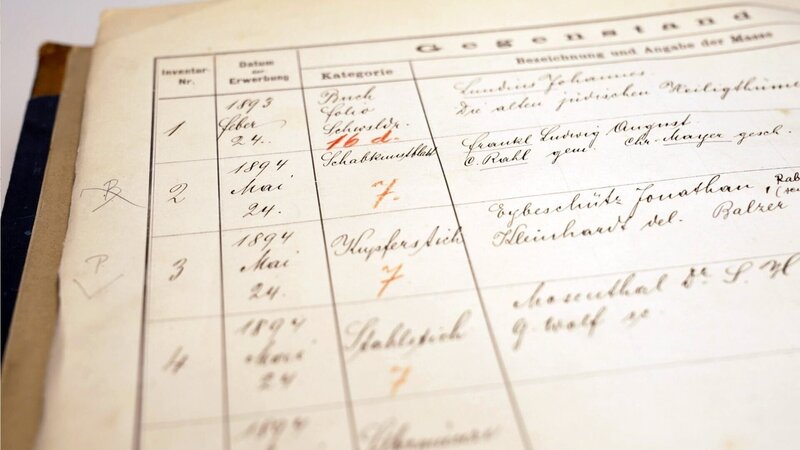 Gegenstand
Inventar-
Nr.
Datum
der
Erwerbung
Kategorie
Bezeichnung und Angabe der Masse
1
1893
feber
24.
Buch
folio
Schwsldr.
16 d.
Lundius Johannes.
Die alten jüdischen Heiligthüme
B
2
1894
Mai
24.
Schabkunstblatt
7.
Frankl Ludwig August
C. Rahl gem. Chr. Mayer gesch.
P
3
1894
Mai
24.
Kupferstich
7
Eybeschütz Jonathan, Rab
Kleinhardt del. Balzer
4
1894
Mai
24
Stahlstich
7
Mosenthal Dr. S. H
G. Wolf sc.
1894